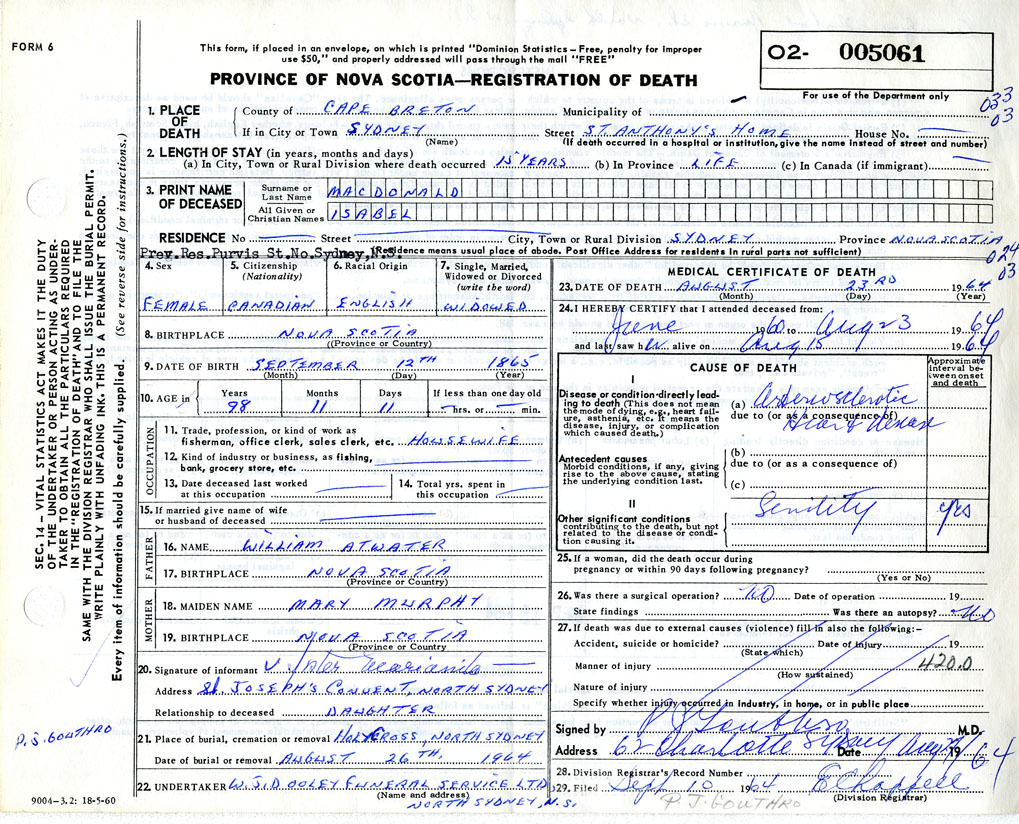 FORM 6
This form, if placed in an envelope, on which is printed "Dominion Statistics – Free, penalty for improper
use $50," and properly addressed will pass through the mail "FREE"
PROVINCE OF NOVA SCOTIA—REGISTRATION OF DEATH
O2- 005061
For use of the Department only
033
03
1. PLACE OF DEATH
County of CAPE BRETON Municipality of
If in City or Town SYDNEY Street ST. ANTHONY'S HOME House No.
(Name) (If death occurred in a hospital or institution, give the name instead of street and number)
2. LENGTH OF STAY (in years, months and days)
(a) In City, Town or Rural Division where death occurred 15 YEARS (b) In Province LIFE (c) In Canada (if immigrant)
3. PRINT NAME OF DECEASED
Surname or Last Name MACDONALD
All Given or Christian Names ISABEL
RESIDENCE No Street City, Town or Rural Division SYDNEY Province NOVA SCOTIA
Prev.Res.Purvis St.No.Sydney,N.S. (Residence means usual place of abode. Post Office Address for residents in rural parts not sufficient)
024
03
4. Sex FEMALE
5. Citizenship (Nationality) CANADIAN
6. Racial Origin ENGLISH
7. Single, Married, Widowed or Divorced (write the word) WIDOWED
8. BIRTHPLACE NOVA SCOTIA
(Province or Country)
9. DATE OF BIRTH SEPTEMBER 12TH 1865
(Month) (Day) (Year)
10. AGE in Years Months Days If less than one day old
98 11 11 hrs. or min.
OCCUPATION
11. Trade, profession, or kind of work as
fisherman, office clerk, sales clerk, etc. HOUSEWIFE
12. Kind of industry or business, as fishing,
bank, grocery store, etc.
13. Date deceased last worked
at this occupation
14. Total yrs. spent in
this occupation
15. If married give name of wife
or husband of deceased
FATHER
16. NAME WILLIAM ATWATER
17. BIRTHPLACE NOVA SCOTIA
(Province or Country)
MOTHER
18. MAIDEN NAME MARY MURPHY
19. BIRTHPLACE NOVA SCOTIA
(Province or Country)
20. Signature of informant
Address St JOSEPH'S CONVENT, NORTH SYDNEY
Relationship to deceased DAUGHTER
21. Place of burial, cremation or removal HOLY CROSS, NORTH SYDNEY
Date of burial or removal AUGUST 26TH, 1964
22. UNDERTAKER W.J. DOOLEY FUNERAL SERVICE LTD
(Name and address)
NORTH SYDNEY, N.S.
9004—3.2: 18-5-60
MEDICAL CERTIFICATE OF DEATH
23. DATE OF DEATH AUGUST 23RD 1964
(Month) (Day) (Year)
24. I HEREBY CERTIFY that I attended deceased from:
June 1960 to Aug 23 1964
and last saw her alive on Aug 15 1964
CAUSE OF DEATH
Approximate interval between onset and death
I
Disease or condition directly leading to death (This does not mean the mode of dying, e.g., heart failure, asthenia, etc. It means the disease, injury, or complication which caused death.)
(a) Arteriosclerotic
due to (or as a consequence of)
Heart Disease
Antecedent causes
Morbid conditions, if any, giving rise to the above cause, stating the underlying condition last.
(b)
due to (or as a consequence of)
(c)
II
Other significant conditions
contributing to the death, but not related to the disease or condition causing it.
Senility yrs
25. If a woman, did the death occur during
pregnancy or within 90 days following pregnancy?
(Yes or No)
26. Was there a surgical operation? NO Date of operation 19
State findings Was there an autopsy? NO
27. If death was due to external causes (violence) fill in also the following:-
Accident, suicide or homicide? Date of injury 19
(State which)
Manner of injury 420.0
(How sustained)
Nature of injury
Specify whether injury occurred in Industry, in home, or in public place
Signed by P J Gouthro M.D.
Address 62 Charlotte Sydney Date Aug 1964
28. Division Registrar's Record Number
29. Filed Sept 10 1964 E Chappell
(Division Registrar)
P. J. GOUTHRO
SEC. 14 – VITAL STATISTICS ACT MAKES IT THE DUTY
OF THE UNDERTAKER OR PERSON ACTING AS UNDER-
TAKER TO OBTAIN ALL THE PARTICULARS REQUIRED
IN THE "REGISTRATION OF DEATH" AND TO FILE THE
SAME WITH THE DIVISION REGISTRAR WHO SHALL ISSUE THE BURIAL PERMIT.
WRITE PLAINLY WITH UNFADING INK. THIS IS A PERMANENT RECORD.
Every item of information should be carefully supplied. (See reverse side for instructions.)
P. J. GOUTHRO